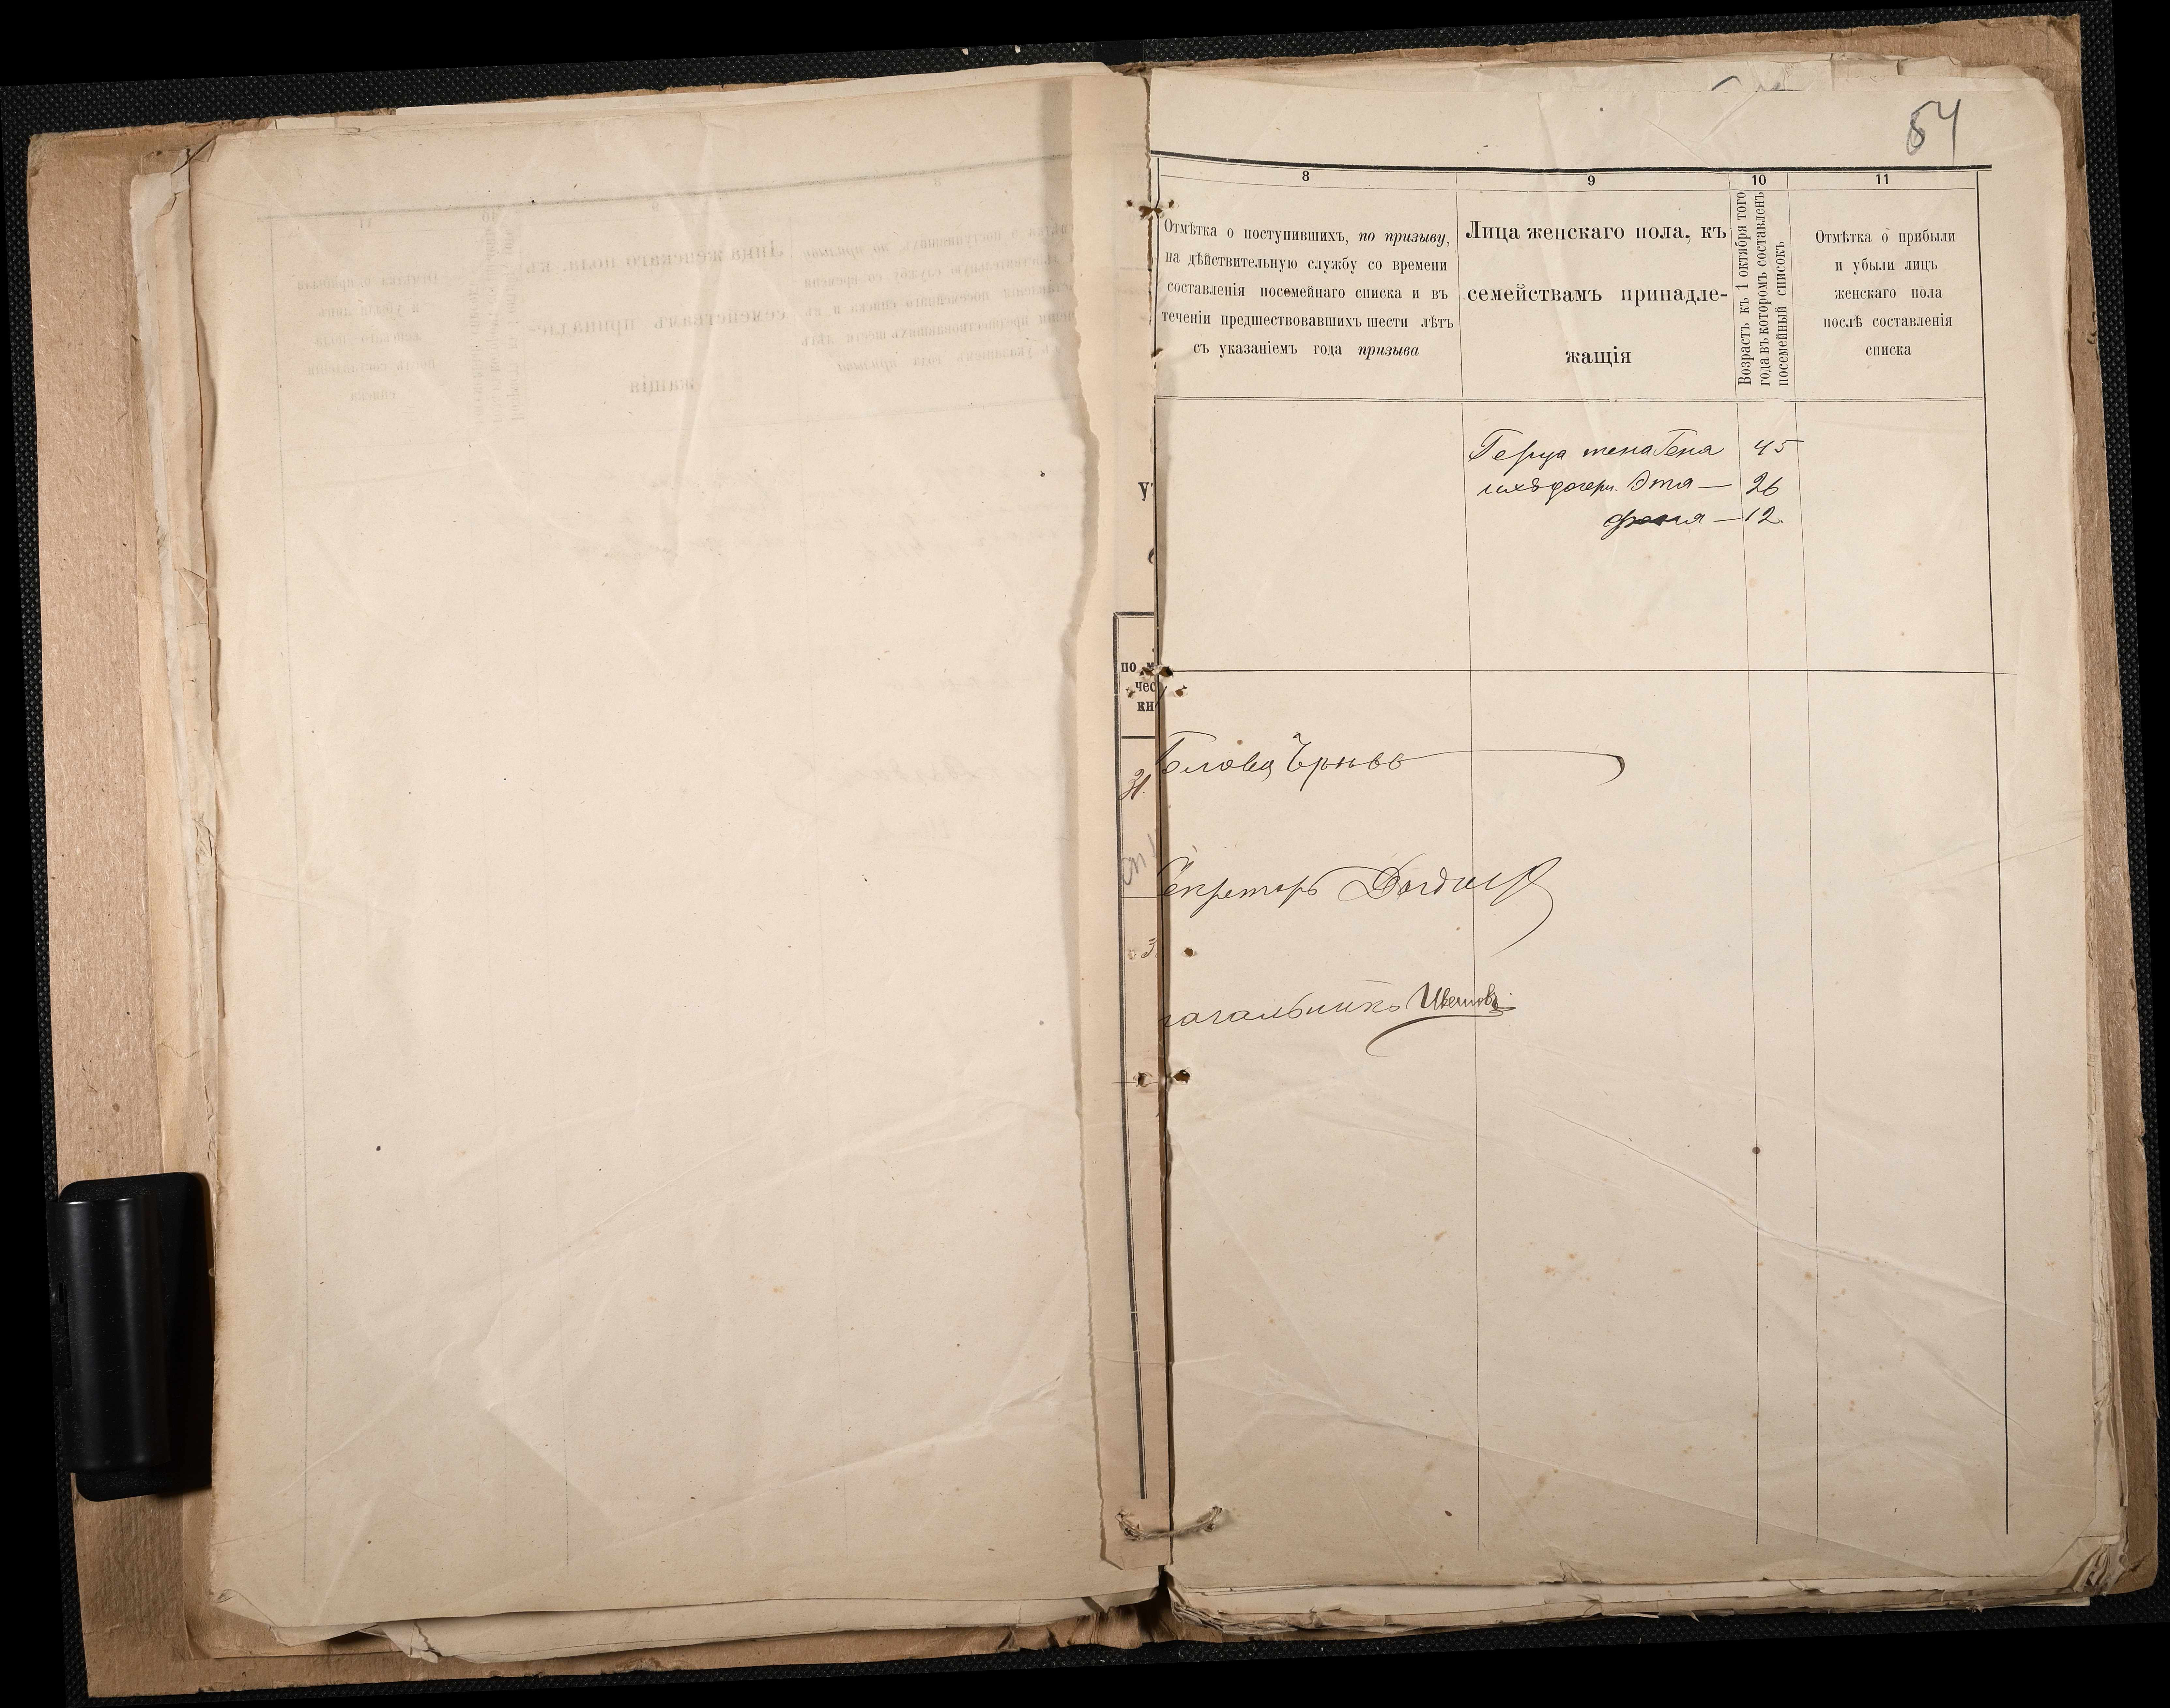 54
8
9
10
11
Отмѣтка о поступившихъ, по призыву,
на дѣйствительную службу со времени
составленія посемейнаго списка и въ
теченіи предшествовавшихъ шести лѣтъ
съ указаніемъ года призыва
Лица женскаго пола, къ
семействамъ принадле-
жащія
Возрастъ къ 1 октября того
года въ которомъ составленъ
посемейный списокъ
Отмѣтка о прибыли
и убыли лицъ
женскаго пола
послѣ составленія
списка
Герца жена Гена 45
ихъ дочери Этя — 26
— 12
по
чес
кн
31.
Секретарь
начальникъ